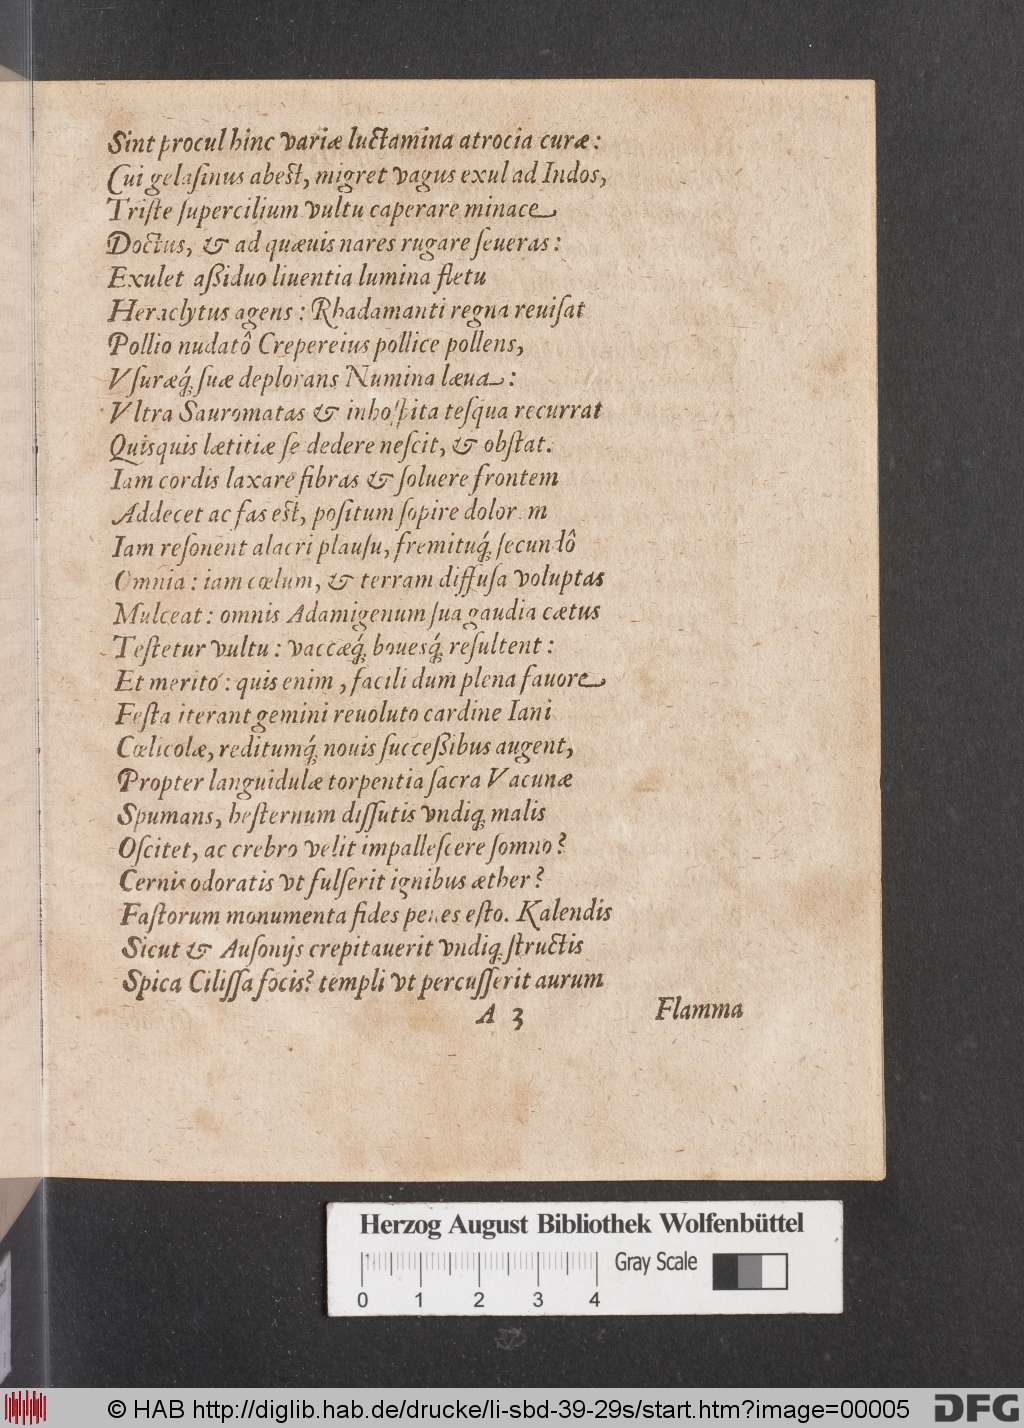 Sint procul hinc variæ luctamina atrocia curæ:
Cui gelaſinus abest, migret vagus exul ad Indos,
Triſte ſupercilium vultu caperare minace
Doctus, & ad quæuis nares rugare ſeueras:
Exulet aßiduo liuentia lumina fletu
Heraclytus agens: Rhadamanti regna reuiſat
Pollio nudatô Crepereius pollice pollens,
Vſuræq́; ſuæ deplorans Numina læua:
Vltra Sauromatas & inhoſpita teſqua recurrat
Quisquis lætitiæ ſe dedere neſcit, & obſtat.
Iam cordis laxare fibras & ſoluere frontem
Addecet ac fas est, poſitum ſopire dolor m
Iam reſonent alacri plauſu, fremituq́; ſecundô
Omnia: iam cœlum, & terram diffuſa voluptas
Mulceat: omnis Adamigenum ſua gaudia cætus
Teſtetur vultu: vaccæq́; bouesq́; reſultent:
Et meritó: quis enim, facili dum plena fauore
Feſta iterant gemini reuoluto cardine Iani
Cœlicolæ, reditumq́; nouis ſucceßibus augent,
Propter languidulæ torpentia ſacra Vacunæ
Spumans, heſternum diſſutis vndiq; malis
Oſcitet, ac crebro velit impalleſcere ſomno?
Cernis odoratis vt fulſerit ignibus æther?
Faſtorum monumenta fides penes eſto. Kalendis
Sicut & Auſonijs crepitauerit vndiq; ſtructis
Spica Ciliſſa focis? templi vt percuſſerit aurum
A 3 Flamma
Herzog August Bibliothek Wolfenbüttel
Gray Scale
0 1 2 3 4
© HAB http://diglib.hab.de/drucke/li-sbd-39-29s/start.htm?image=00005
DFG